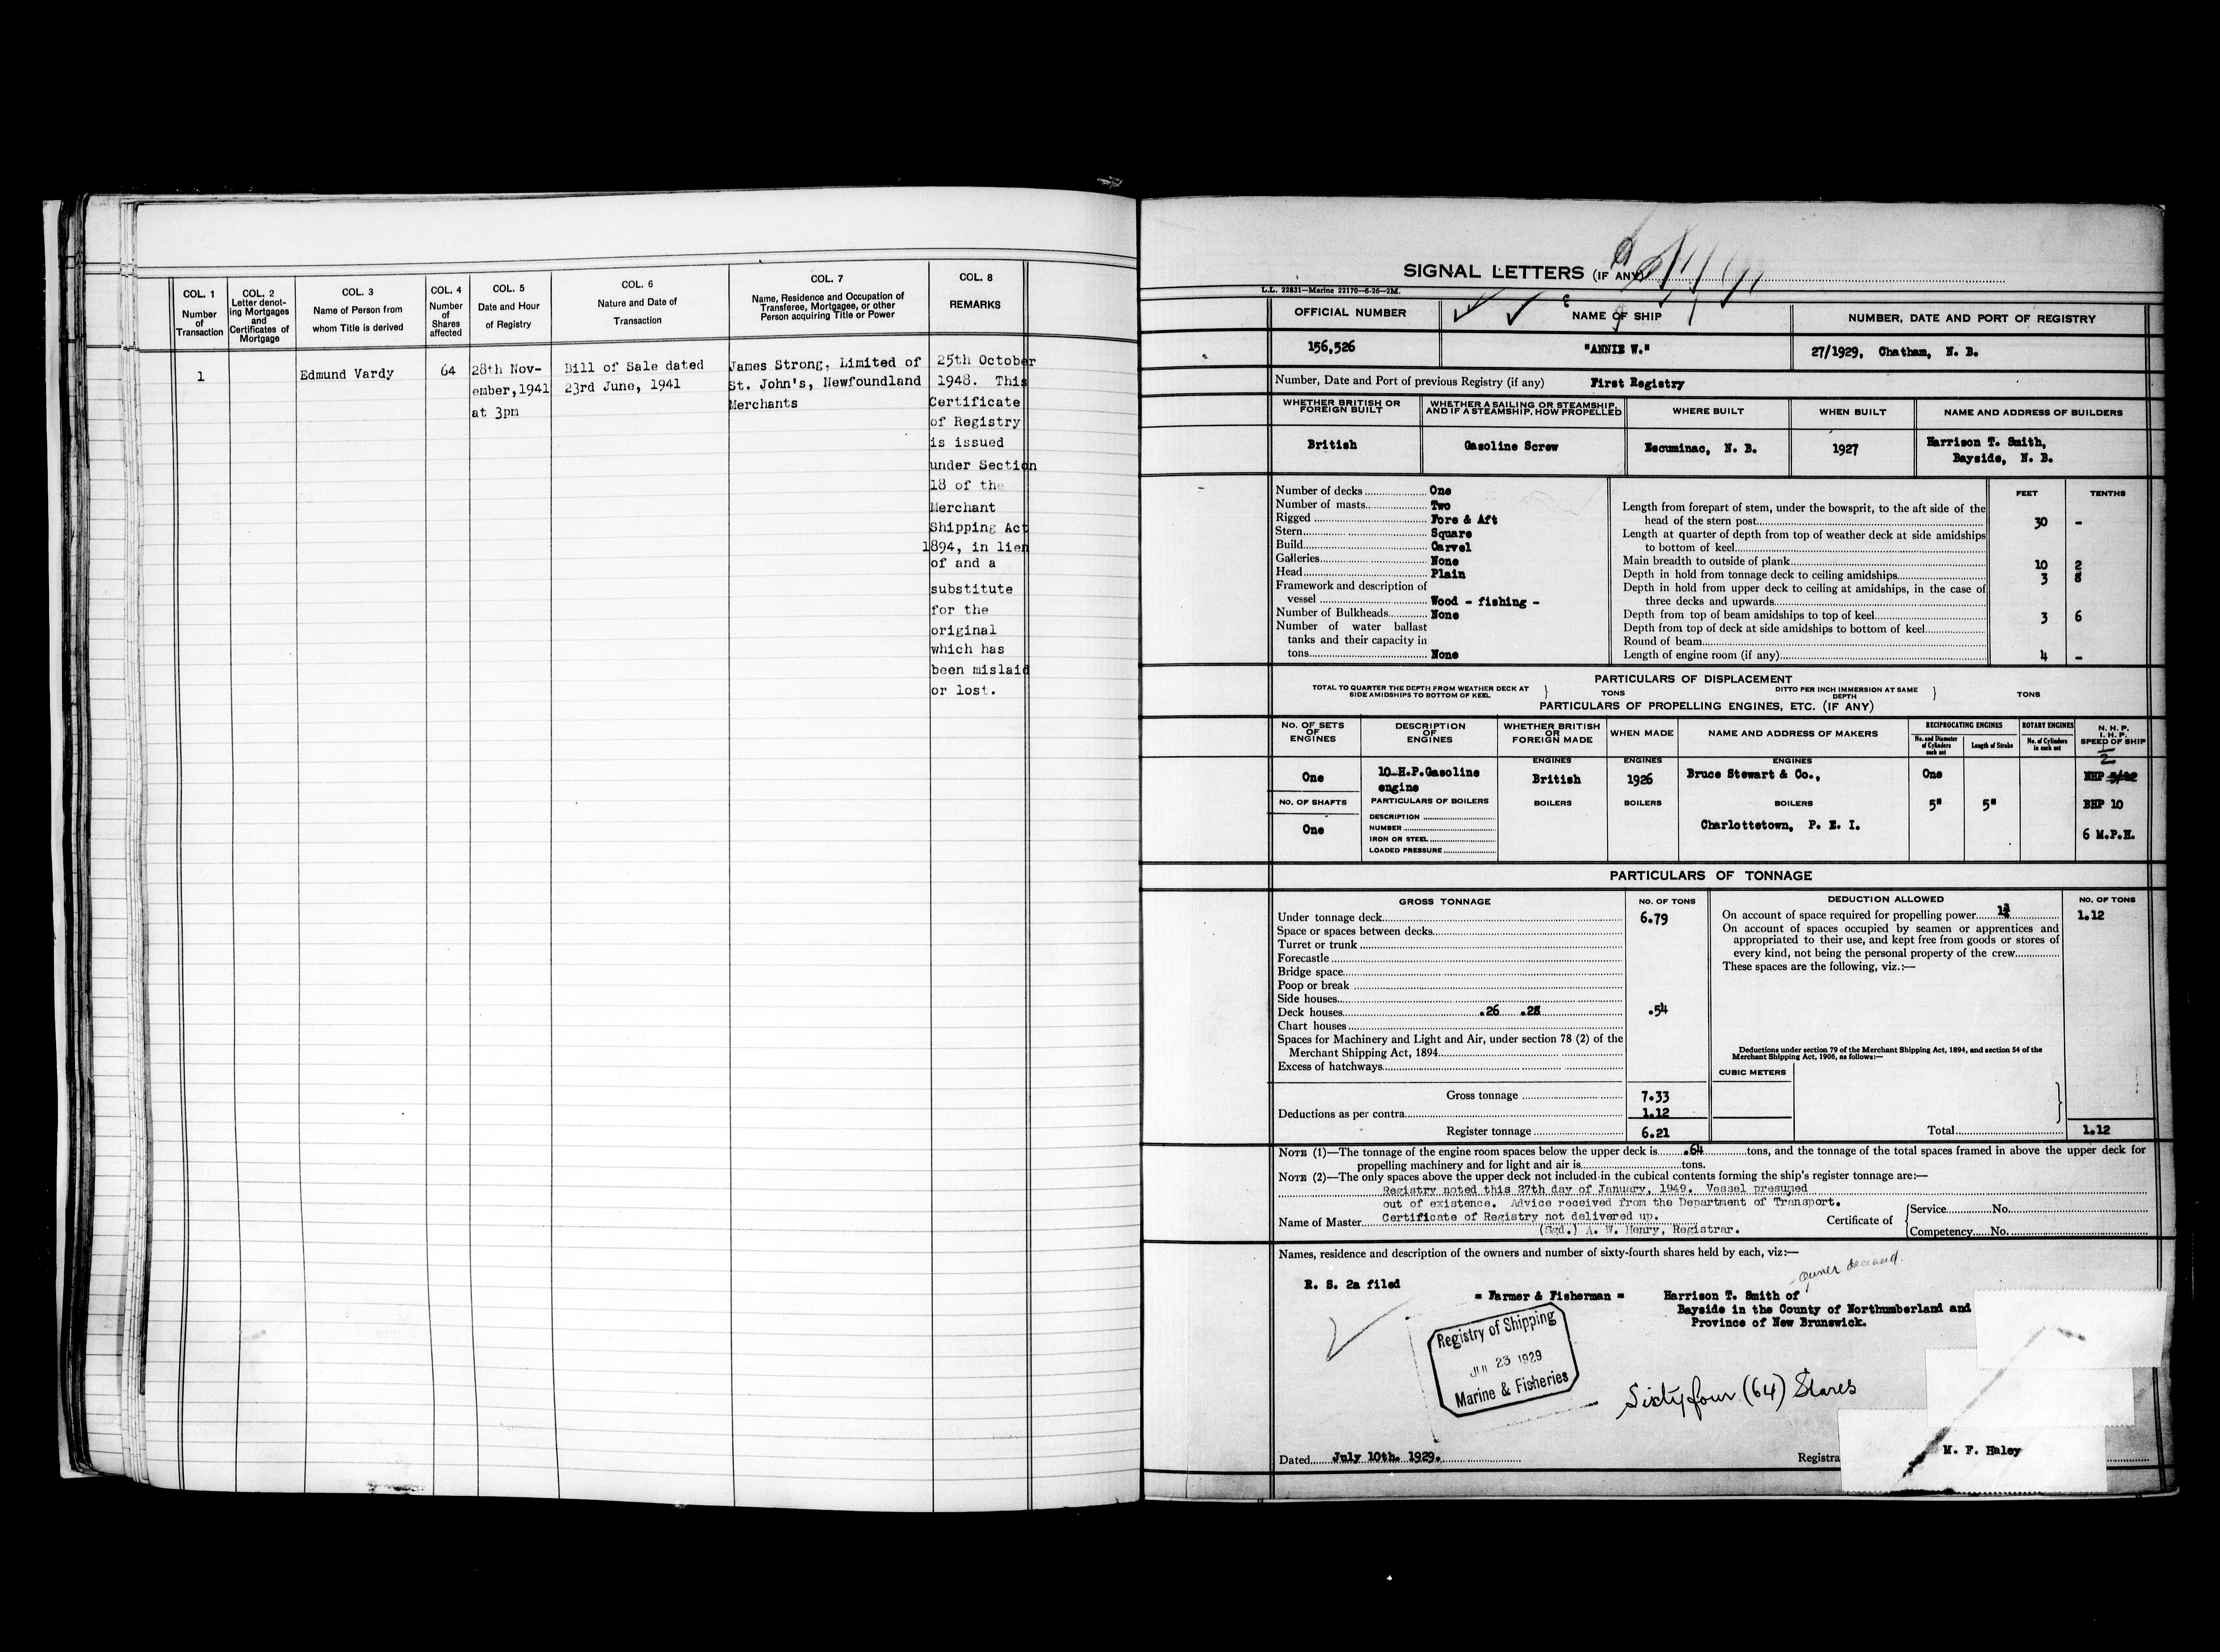 COL. 1
Number
of
Transaction
COL. 2
Letter denot-
ing Mortgages
and
Certificates of
Mortgage
COL. 3
Name of Person from
whom Title is derived
COL. 4
Number
of
Shares
affected
COL. 5
Date and Hour
of Registry
COL. 6
Nature and Date of
Transaction
COL. 7
Name, Residence and Occupation of
Transferee, Mortgagee, or other
Person acquiring Title or Power
COL. 8
REMARKS
1
Edmund Vardy
64
28th Nov-
ember,1941
at 3pm
Bill of Sale dated
23rd June, 1941
James Strong, Limited of
St. John's, Newfoundland
Merchants
25th October
1948. This
Certificate
of Registry
is issued
under Section
18 of the
Merchant
Shipping Act
1894, in lien
of and a
substitute
for the
original
which has
been mislaid
or lost.
SIGNAL LETTERS (IF ANY)
L.L. 22831—Marine 22170—6-26—2M.
OFFICIAL NUMBER
NAME OF SHIP
NUMBER, DATE AND PORT OF REGISTRY
156,526
"ANNIE W."
27/1929, Chatham, N. B.
Number, Date and Port of previous Registry (if any) First Registry
WHETHER BRITISH OR
FOREIGN BUILT
WHETHER A SAILING OR STEAMSHIP,
AND IF A STEAMSHIP, HOW PROPELLED
WHERE BUILT
WHEN BUILT
NAME AND ADDRESS OF BUILDERS
British
Gasoline Screw
Escuminac, N. B.
1927
Harrison T. Smith,
Bayside, N. B.
Number of decks One
Number of masts Two
Rigged Fore & Aft
Stern Square
Build Carvel
Galleries None
Head Plain
Framework and description of
vessel Wood - fishing -
Number of Bulkheads None
Number of water ballast
tanks and their capacity in
tons None
FEET TENTHS
Length from forepart of stem, under the bowsprit, to the aft side of the
head of the stern post 30 -
Length at quarter of depth from top of weather deck at side amidships
to bottom of keel
Main breadth to outside of plank 10 2
Depth in hold from tonnage deck to ceiling amidships 3 8
Depth in hold from upper deck to ceiling at amidships, in the case of
three decks and upwards
Depth from top of beam amidships to top of keel 3 6
Depth from top of deck at side amidships to bottom of keel
Round of beam
Length of engine room (if any) 4 -
PARTICULARS OF DISPLACEMENT
TOTAL TO QUARTER THE DEPTH FROM WEATHER DECK AT
SIDE AMIDSHIPS TO BOTTOM OF KEEL
TONS
DITTO PER INCH IMMERSION AT SAME
DEPTH
TONS
PARTICULARS OF PROPELLING ENGINES, ETC. (IF ANY)
NO. OF SETS
OF
ENGINES
DESCRIPTION
OF
ENGINES
WHETHER BRITISH
OR
FOREIGN MADE
WHEN MADE
NAME AND ADDRESS OF MAKERS
RECIPROCATING ENGINES
No. and Diameter
of Cylinders
each set
Length of Stroke
ROTARY ENGINES
No. of Cylinders
in each set
N. H. P.
I. H. P.
SPEED OF SHIP
ENGINES
ENGINES
ENGINES
One
10-H.P.Gasoline
engine
British
1926
Bruce Stewart & Co.,
One
1/2
NHP
NO. OF SHAFTS
PARTICULARS OF BOILERS
BOILERS
BOILERS
BOILERS
5"
5"
BHP 10
One
DESCRIPTION
NUMBER
IRON OR STEEL
LOADED PRESSURE
Charlottetown, P. E. I.
6 M.P.H.
PARTICULARS OF TONNAGE
GROSS TONNAGE
NO. OF TONS
Under tonnage deck 6.79
Space or spaces between decks
Turret or trunk
Forecastle
Bridge space
Poop or break
Side houses
Deck houses .26 .28 .54
Chart houses
Spaces for Machinery and Light and Air, under section 78 (2) of the
Merchant Shipping Act, 1894
Excess of hatchways
Gross tonnage 7.33
Deductions as per contra 1.12
Register tonnage 6.21
DEDUCTION ALLOWED
NO. OF TONS
On account of space required for propelling power 1¾ 1.12
On account of spaces occupied by seamen or apprentices and
appropriated to their use, and kept free from goods or stores of
every kind, not being the personal property of the crew
These spaces are the following, viz.:—
Deductions under section 79 of the Merchant Shipping Act, 1894, and section 54 of the
Merchant Shipping Act, 1906, as follows:—
CUBIC METERS
Total 1.12
NOTE (1)—The tonnage of the engine room spaces below the upper deck is .64 tons, and the tonnage of the total spaces framed in above the upper deck for
propelling machinery and for light and air is tons.
NOTE (2)—The only spaces above the upper deck not included in the cubical contents forming the ship's register tonnage are:—
Registry noted this 27th day of January, 1949. Vessel presumed
out of existence. Advice received from the Department of Transport.
Name of Master Certificate of Registry not delivered up.
(Sgd.) A. W. Henry, Registrar.
Certificate of
Service No.
Competency No.
Names, residence and description of the owners and number of sixty-fourth shares held by each, viz:—
owner deceased.
R. S. 2a filed
= Farmer & Fisherman =
Harrison T. Smith of
Bayside in the County of Northumberland and
Province of New Brunswick.
Registry of Shipping
JUL 23 1929
Marine & Fisheries
Sixty four (64) Shares
Dated July 10th. 1929.
Registra
M. F. Haley